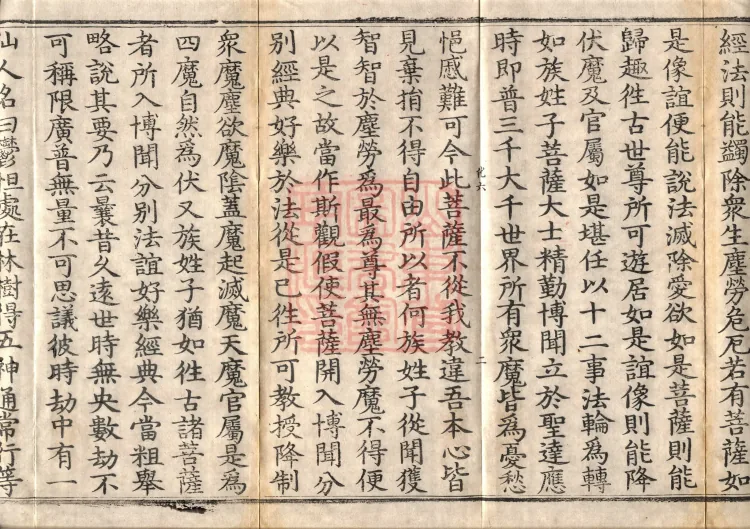 經法則能蠲除衆生塵勞危厄若有菩薩如
是像誼便能說法滅除愛欲如是菩薩則能
歸趣徃古世尊所可遊居如是誼像則能降
伏魔及官屬如是堪任以十二事法輪爲轉
如族姓子菩薩大士精勤博聞立於聖達應
時即普三千大千世界所有衆魔皆爲憂愁
化六
二
悒慼難可今此菩薩不從我教違吾本心皆
見棄捐不得自由所以者何族姓子從聞獲
智智於塵勞爲最爲尊其無塵勞魔不得便
以是之故當作斯觀假使菩薩開入博聞分
別經典好樂於法從是已徃所可教授降制
衆魔塵欲魔陰蓋魔起滅魔天魔官屬是爲
四魔自然爲伏又族姓子猶如徃古諸菩薩
者所入博聞分別法誼好樂經典今當粗舉
略說其要乃云曩昔久遠世時無央數劫不
可稱限廣普無量不可思議彼時劫中有一
仙人名曰鬱怛處在林樹得五神通常行等